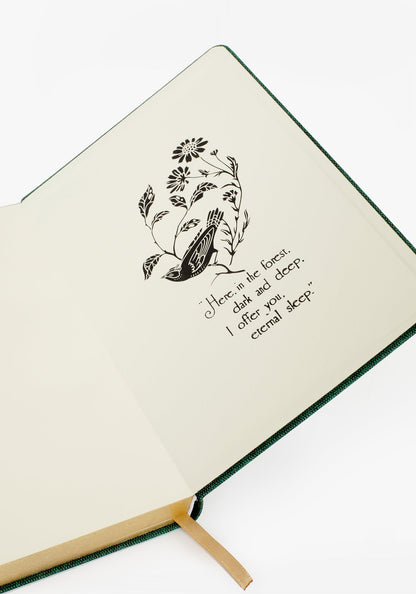 "Here, in the forest,
dark and deep,
I offer you,
eternal sleep."